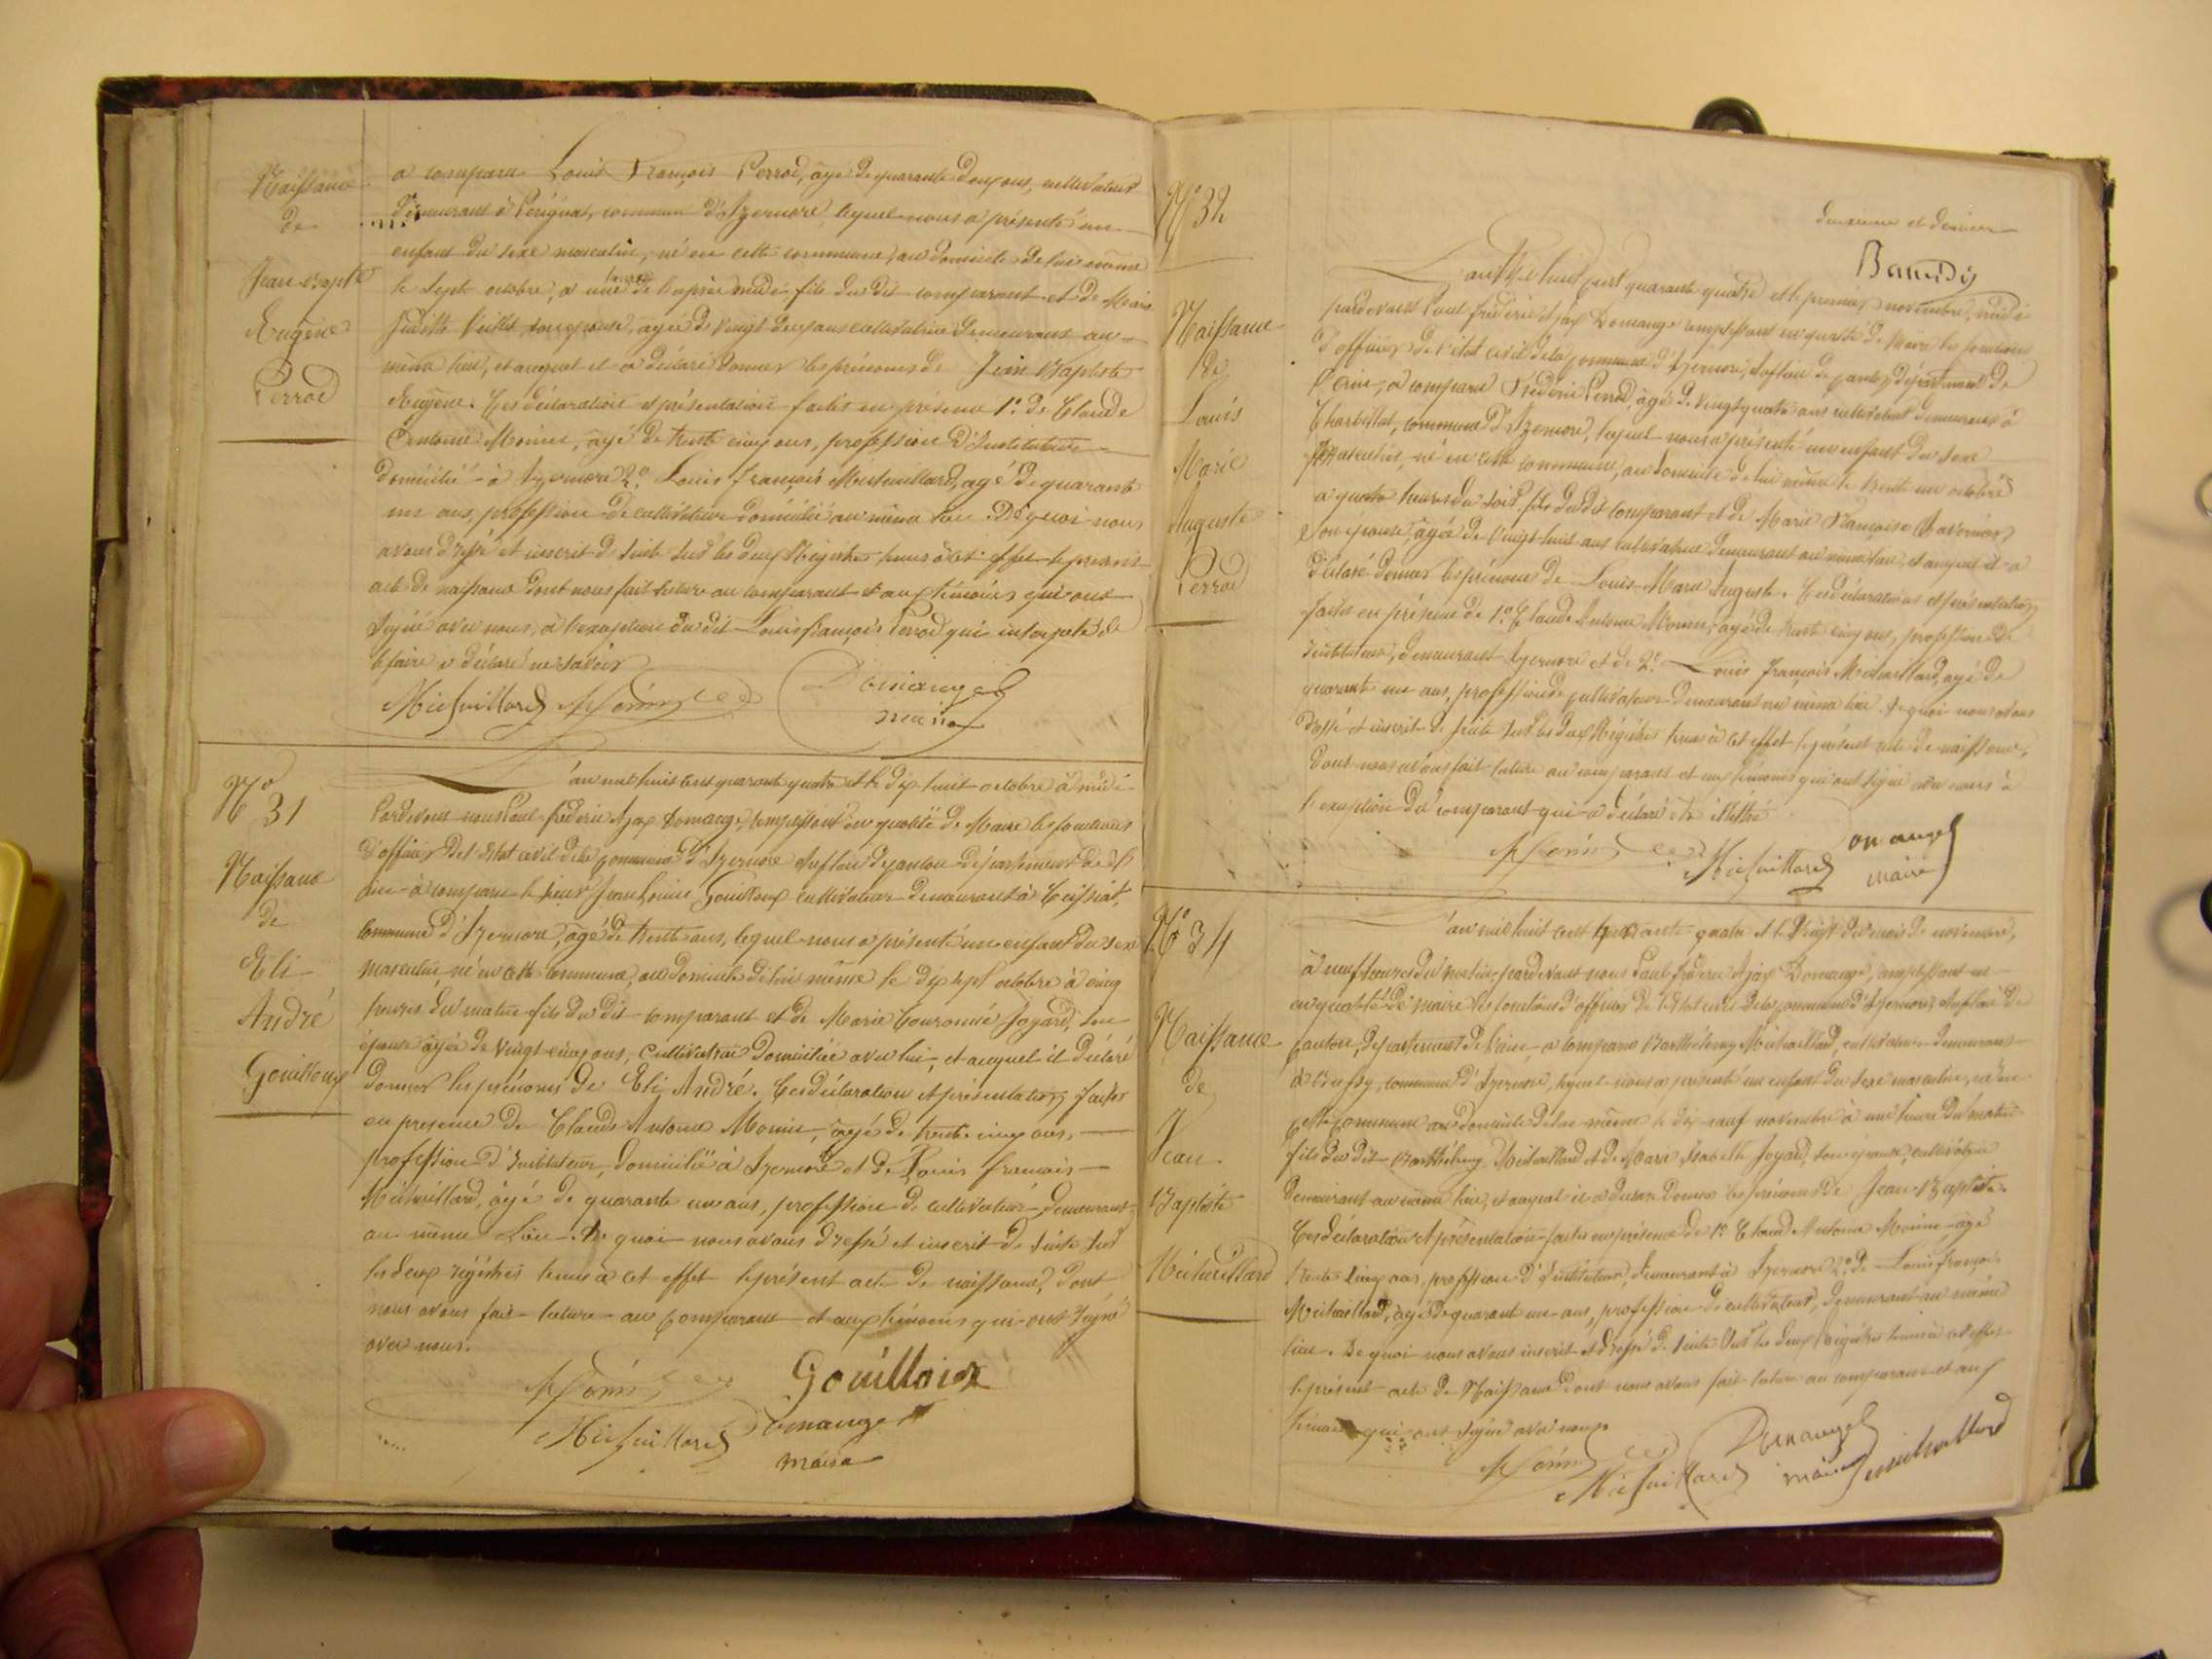 Naissance
de
Jean-Bapte
Eugène
Perrod
a comparu Louis François Perrod, âgé de quarante deux ans, cultivateur
demeurant à Pérignat, commune d'Izernore lequel nous a présenté un
enfant du sexe masculin, né en cette commune, au domicile de lui même
le sept octobre, à une heure de l'après midi fils du dit comparant et de Marie
Judith son épouse, agée de vingt deux ans cultivatrice demeurant au
même lieu, et auquel il a déclaré donner les prénoms de Jean Baptiste
Eugène. Ces déclaration et présentation faites en présence 1º. de Claude
Antoine Monin, âgé de trente cinq ans, profession d'Instituteur
domicilié à Izernore 2º. Louis françois Michaillard, agé de quarante
un ans, profession de cultivateur domicilié au même lieu. De quoi nous
avons dressé et inscrit de suite sur les deux Registres tenus à cet effet le présent
acte de naissance dont nous fait lecture au comparant et aux témoins qui ont
signé avec nous, à l'exception du dit Louis françois Perrod qui interpelé de
le faire a déclaré ne savoir
Michaillard Monin Domange
maire
Nº 31
Naissance
de
Eli
André
Gouilloux
L'an mil huit cent quarante quatre et le dix huit octobre à midi
Pardevant nous Paul frédéric Ajax Domange, remplissant en qualité de Maire les fonctions
d'officier de l'état civil de la commune d'Izernore chef lieu de canton département de l'
ain a comparu le sieur Jean Louis Gouilloux cultivateur demeurant à Ceissiat,
commune d'Izernore, âgé de trente ans, lequel nous a présenté un enfant du sexe
masculin né en cette commune, au domicile de lui même le dix sept octobre à cinq
heures du matin fils du dit comparant et de Marie Couronne Joyard, son
épouse agée de vingt cinq ans, cultivatrice domiciliée avec lui, et auquel il déclaré
donner les prénoms de Eli André. Ces déclaration et présentation faites
en presence de Claude Antoine Monin, âgé de trente cinq ans,
profession d'Instituteur, domicilié à Izernore et de Louis francois
Michaillard, âgé de quarante un ans, profession de cultivateur, demeurant
au même lieu. De quoi nous avons dressé et inscrit de suite sur
les deux registres tenus à cet effet le présent acte de naissance, dont
nous avons fait lecture au comparant et aux témoins qui ont signé
avec nous.
Monin Gouilloux
Michaillard Domange
maire
Nº 32
Naissance
de
Louis
Marie
Auguste
Perrod
deuxième et dernier
L'an Mil huit cent quarante quatre et le premier novembre, midi
pardevant Paul frédéric Ajax Domange remplissant en qualité de Maire les fonctions
d'officier de l'état civil de la commune d'Izernore, chef lieu de canton, département de
l'ain, a comparu Frédéric Perrod, âgé de vingt quatre ans cultivateur demeurant à
Charbillat, commune d'Izernore, lequel nous a présenté un enfant du sexe
Masculin, né en cette commune, au domicile de lui même le trente un octobre
a quatre heures du soir. fils du dit comparant et de Marie Françoise
son épouse, âgée de vingt huit ans cultivatrice demeurant au même lieu, et auquel il a
déclaré donner les prénoms de Louis Marie Auguste. Ces déclarations et présentation
faites en présence de 1º. Claude Antoine Monin, agé de trente cinq ans, profession de
instituteur, demeurant Izernore et de 2º. Louis françois Michaillard, agé de
quarante un ans, profession de cultivateur demeurant au même lieu. De quoi nous avons
dressé et inscrit de suite sur les deux Registres tenus à cet effet le présent acte de naissance,
dont nous avons fait lecture au comparant et aux témoins qui ont signé avec nous à
l'exception du comparant qui a déclaré être illétré
Monin Michaillard Domange
maire
Nº 34
Naissance
de
Jean
Baptiste
Michaillard
L'an mil huit cent quarante quatre et le vingt du mois de novembre,
à neuf heures du matin pardevant nous Paul frédéric Ajax Domange, remplissant en
en qualité de maire les fonctions d'officier de l'état civil de la commune d'Izernore, chef lieu de
canton, département de l'ain, a comparu Barthélemy Michaillard, cultivateur demeurant
à Bussy, commune d'Izernore, lequel nous a présenté un enfant du sexe masculin, né en
cette commune au domicile de lui même le dix neuf novembre à une heure du matin
fils du dit Barthélemy Michaillard et de Marie Isabelle Joyard, son épouse, cultivatrice
demeurant au même lieu, et auquel il a déclaré donner les prénoms de Jean-Baptiste.
Ces déclaration et présentation faites en présence de 1º Claude Antoine Monin, âgé
trente cinq ans, profession d'Instituteur, demeurant à Izernore 2º. de Louis françois
Michaillard, âgé de quarante un ans, profession de cultivateur, demeurant au même
lieu. De quoi nous avons inscrit et dressé de suite sur les deux registres tenus à cet effet
le présent acte de Naissance dont nous avons fait lecture au comparant et aux
témoins qui ont signé avec nous.
Monin Domange
Michaillard maire Michaillard